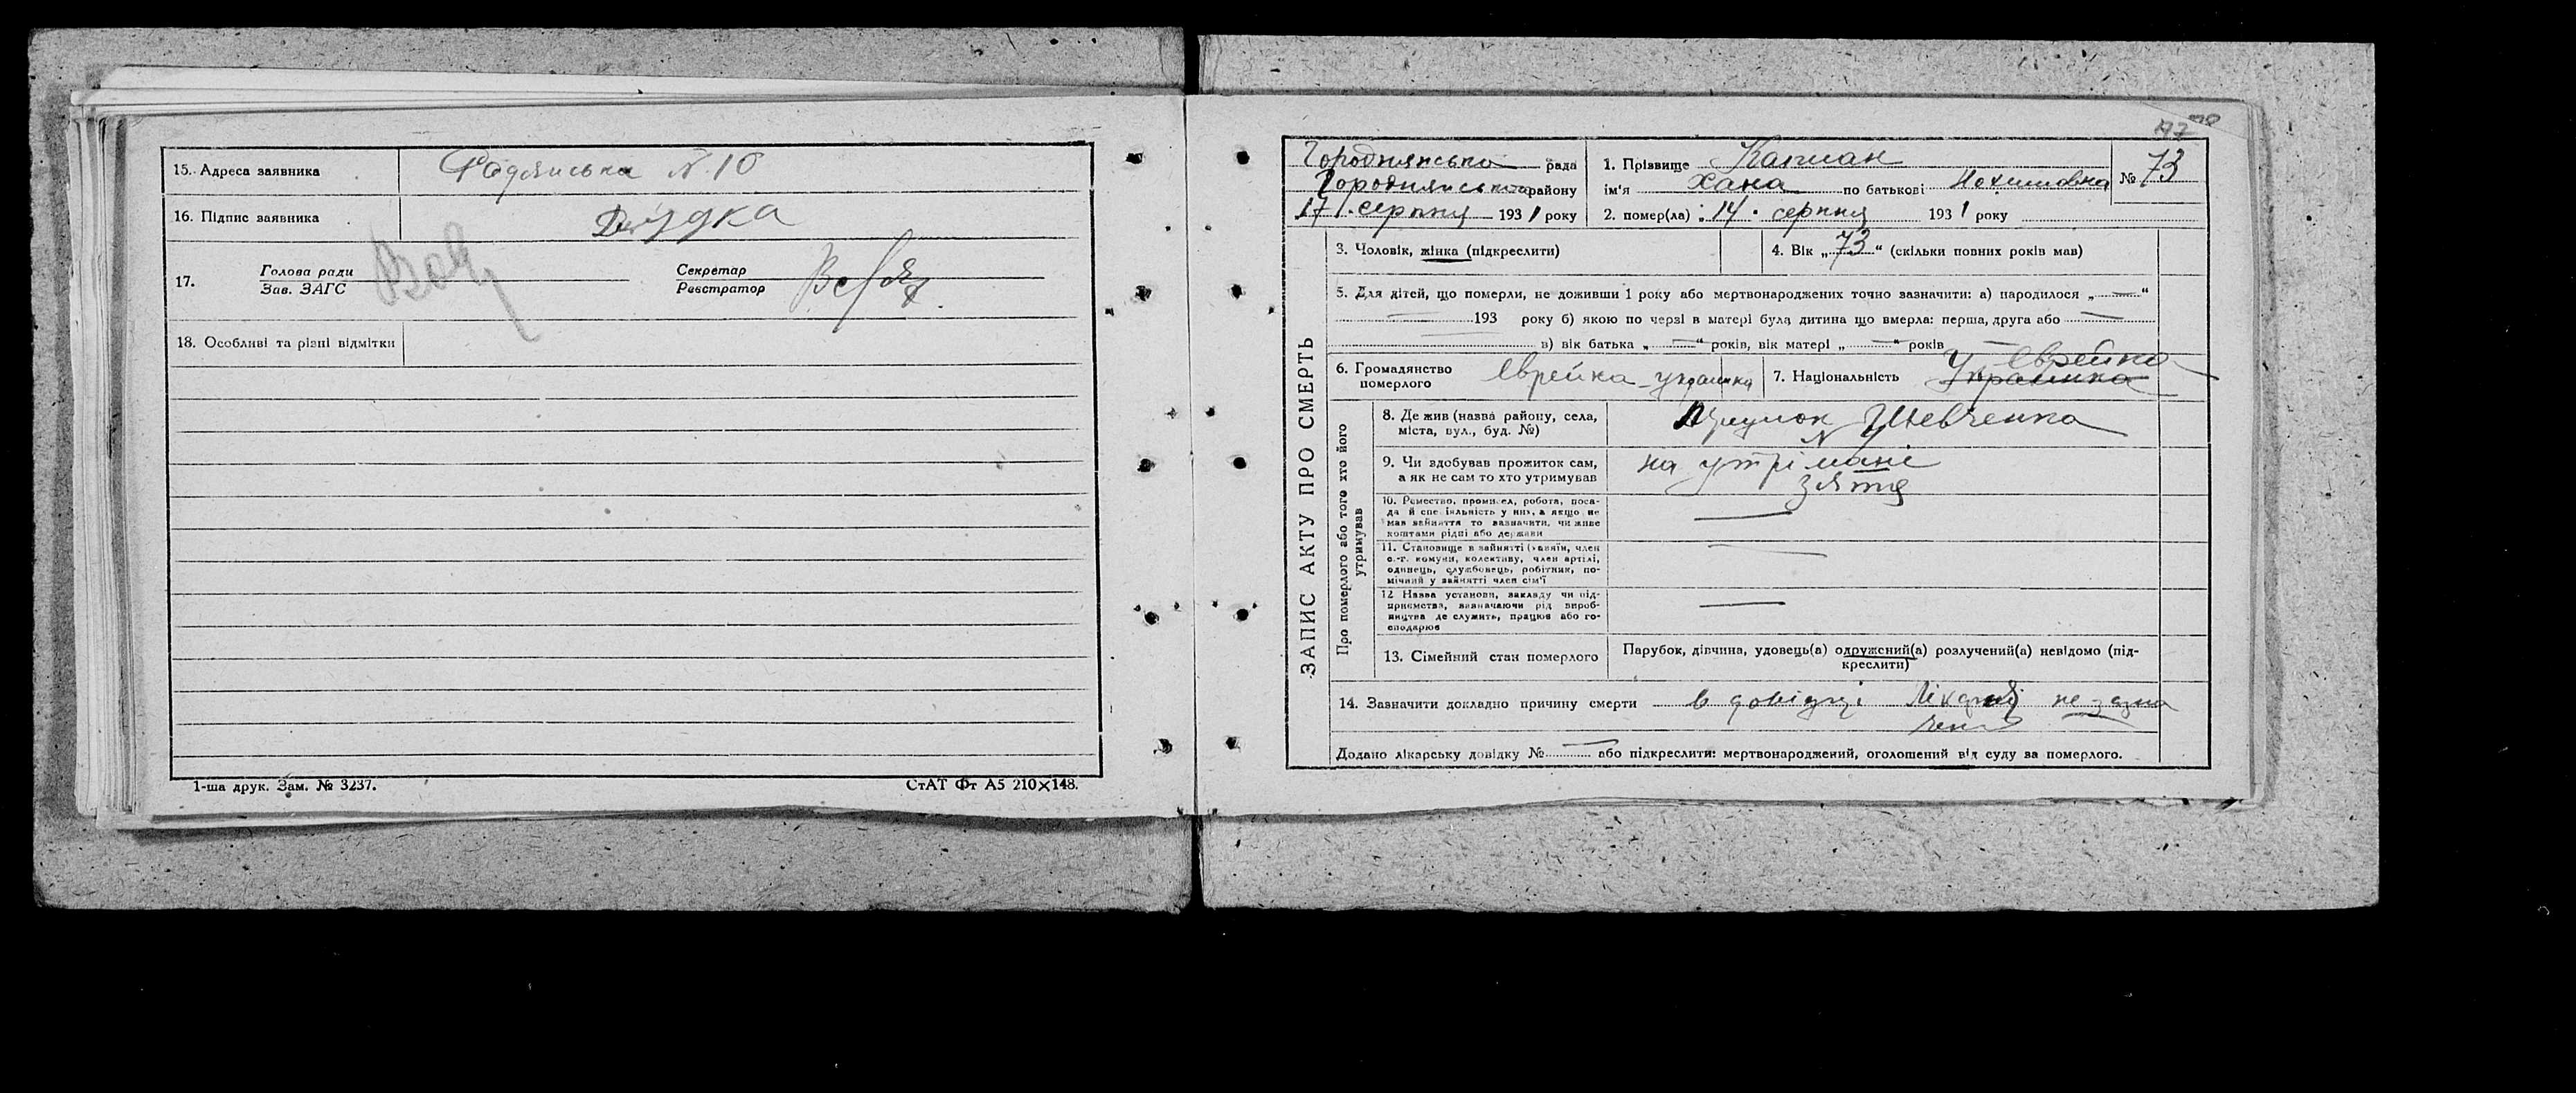 15. Адреса заявника Радянська N 10
16. Підпис заявника Дудка
17. Голова ради Зав. ЗАГС Секретар Реєстратор
18. Особливі та різні відмітки
1-ша друк. Зам. № 3237. СтАТ Фт А5 210×148.
Городнянська рада
Городнянського району
17. серпня 1931 року
1. Прізвище Капман
ім'я Хана по батькові
№ 73
2. помер(ла) „ 14 " серпня 1931 року
ЗАПИС АКТУ ПРО СМЕРТЬ
3. Чоловік, жінка (підкреслити)
4. Вік „ 73 " (скільки повних років мав)
5. Для дітей, що померли, не доживши 1 року або мертвонароджених точно зазначити: а) народилося „ — "
— 193 року б) якою по черзі в матері була дитина що вмерла: перша, друга або —
в) вік батька „ — " років, вік матері „ — " років —
6. Громадянство
померлого Єврейка українка
7. Національність Українка Єврейка
Про померлого або того хто його
утримував
8. Де жив (назва району, села,
міста, вул., буд. №) Шевченка
9. Чи здобував прожиток сам,
а як не сам то хто утримував
на утрімані
зятя
10. Ремество, промисел, робота, поса-
да й спеціяльність у них, а якщо не
мав зайняття то зазначити, чи живе
коштами рідні або держави —
11. Становище в зайнятті (хазяїн, член
с.-г. комуни, колективу, член артілі,
одинець, службовець, робітник, по-
мічний у зайнятті член сім'ї —
12 Назва установи, закладу чи під-
приємства, зазначаючи рід вироб-
ництва де служить, працює або го-
сподарює —
13. Сімейний стан померлого
Парубок, дівчина, удовець(а) одружений(а) розлучений(а) невідомо (під-
креслити)
14. Зазначити докладно причину смерти в довідці лікарні не зазна
чено
Додано лікарську довідку № — або підкреслити: мертвонароджений, оголошений від суду за померлого.